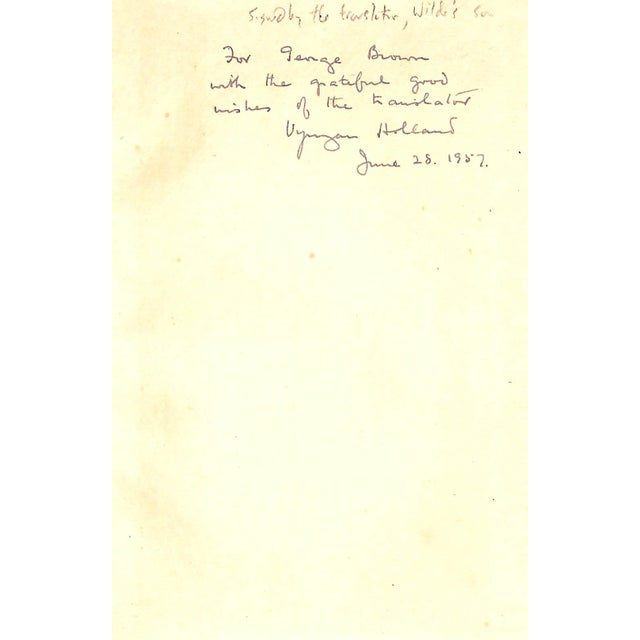 Signed by the translator, Wilde's son
For George Brown
with the grateful good
wishes of the translator
Vyvyan Holland
June 28. 1957.